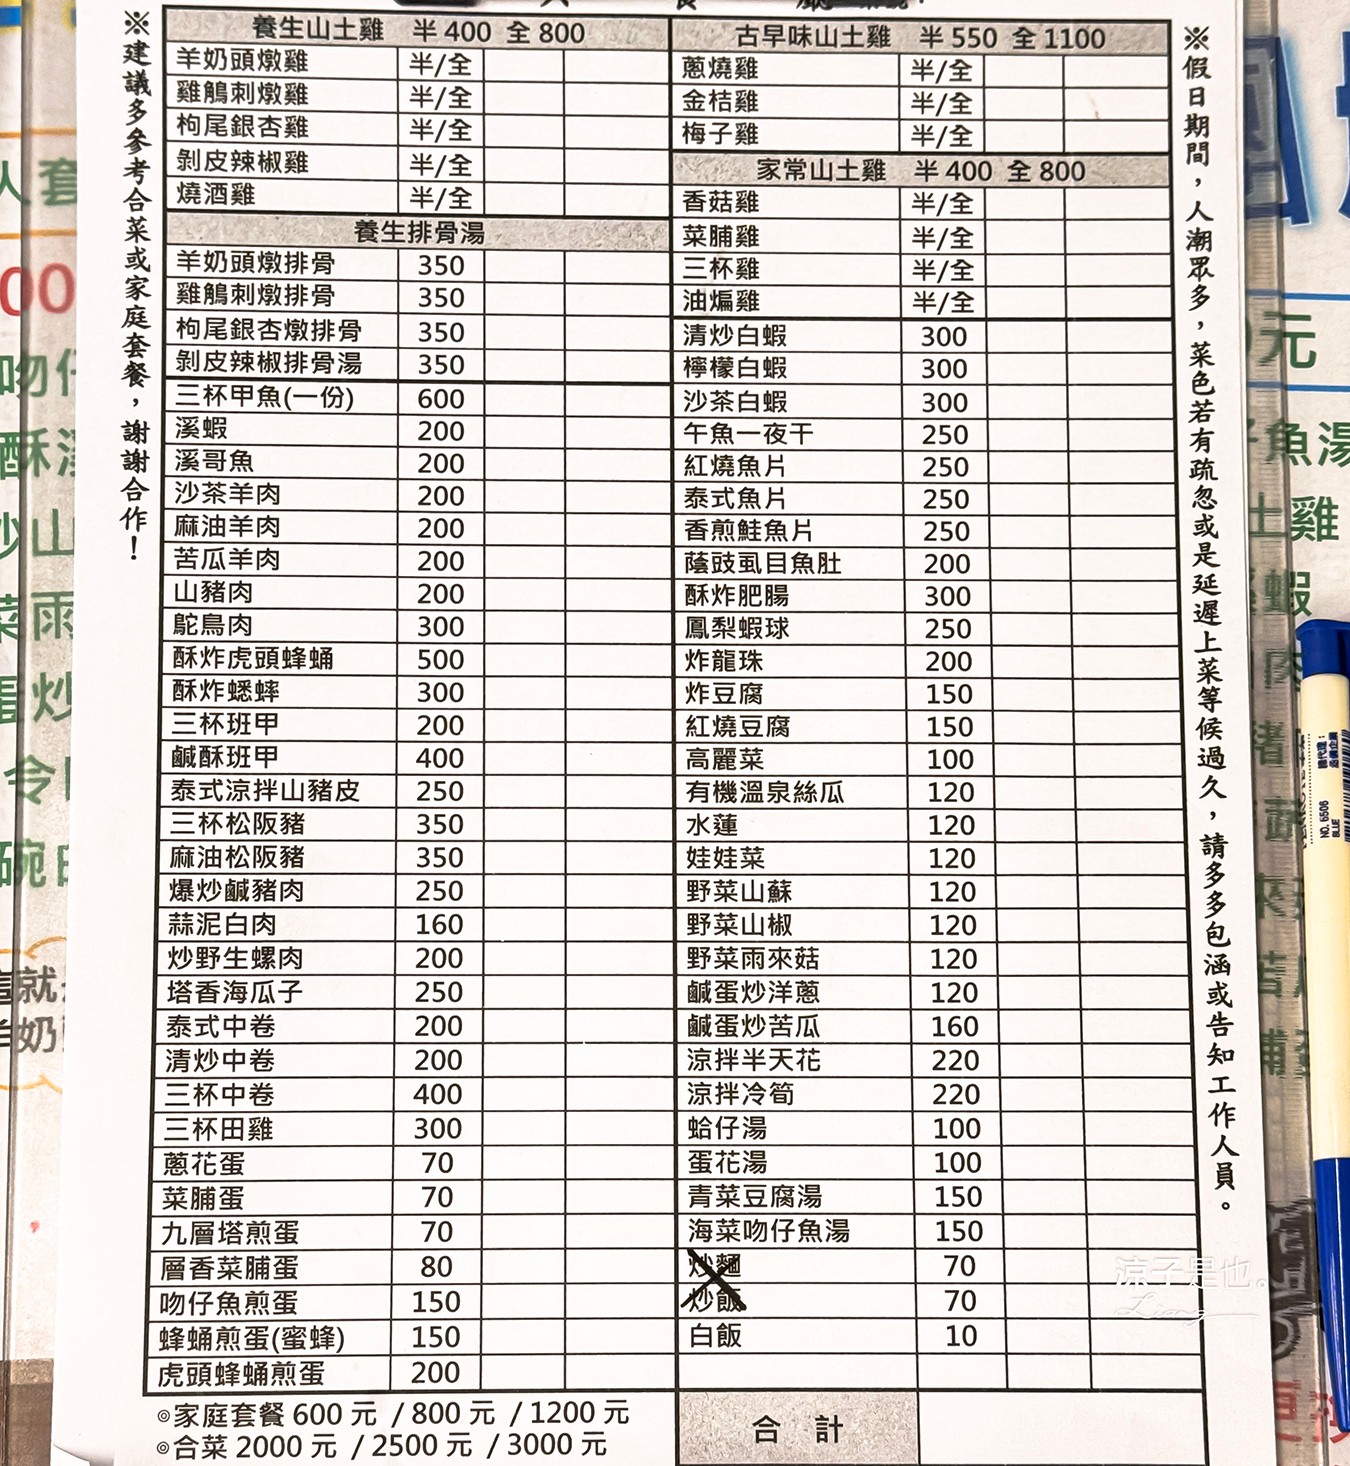 ※建議多參考合菜或家庭套餐，謝謝合作！
養生山土雞 半400 全800
羊奶頭燉雞 半/全
雞鵤刺燉雞 半/全
枸尾銀杏雞 半/全
剝皮辣椒雞 半/全
燒酒雞 半/全
養生排骨湯
羊奶頭燉排骨 350
雞鵤刺燉排骨 350
枸尾銀杏燉排骨 350
剝皮辣椒排骨湯 350
三杯甲魚(一份) 600
溪蝦 200
溪哥魚 200
沙茶羊肉 200
麻油羊肉 200
苦瓜羊肉 200
山豬肉 200
鴕鳥肉 300
酥炸虎頭蜂蛹 500
酥炸蟋蟀 300
三杯班甲 200
鹹酥班甲 400
泰式涼拌山豬皮 250
三杯松阪豬 350
麻油松阪豬 350
爆炒鹹豬肉 250
蒜泥白肉 160
炒野生螺肉 200
塔香海瓜子 250
泰式中卷 200
清炒中卷 200
三杯中卷 400
三杯田雞 300
蔥花蛋 70
菜脯蛋 70
九層塔煎蛋 70
層香菜脯蛋 80
吻仔魚煎蛋 150
蜂蛹煎蛋(蜜蜂) 150
虎頭蜂蛹煎蛋 200
◎家庭套餐 600元 /800元 /1200元
◎合菜 2000元 /2500元 /3000元
古早味山土雞 半550 全1100
蔥燒雞 半/全
金桔雞 半/全
梅子雞 半/全
家常山土雞 半400 全800
香菇雞 半/全
菜脯雞 半/全
三杯雞 半/全
油煸雞 半/全
清炒白蝦 300
檸檬白蝦 300
沙茶白蝦 300
午魚一夜干 250
紅燒魚片 250
泰式魚片 250
香煎鮭魚片 250
蔭豉虱目魚肚 200
酥炸肥腸 300
鳳梨蝦球 250
炸龍珠 200
炸豆腐 150
紅燒豆腐 150
高麗菜 100
有機溫泉絲瓜 120
水蓮 120
娃娃菜 120
野菜山蘇 120
野菜山椒 120
野菜雨來菇 120
鹹蛋炒洋蔥 120
鹹蛋炒苦瓜 160
涼拌半天花 220
涼拌冷筍 220
蛤仔湯 100
蛋花湯 100
青菜豆腐湯 150
海菜吻仔魚湯 150
炒麵 70
炒飯 70
白飯 10
合計
※假日期間，人潮眾多，菜色若有疏忽或是延遲上菜等候過久，請多多包涵或告知工作人員。
涼子是也。
Liang
NO. 6506
BLUE